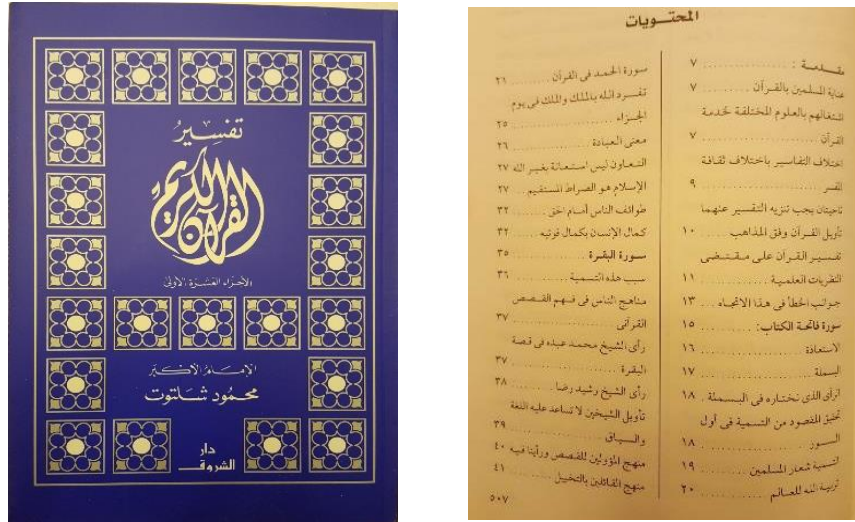 تفسير
القرآن الكريم
الأجزاء العشرة الأولى
الإمام الأكبر
محمود شلتوت
دار
الشروق
المحتويات
مقدمة : ............... ٧
عناية المسلمين بالقرآن ....... ٧
اشتغالهم بالعلوم المختلفة خدمة
القرآن ............... ٧
اختلاف التفاسير باختلاف ثقافة
المفسر ............... ٩
ناحيتان يجب تنزيه التفسير عنهما
تأويل القرآن وفق المذاهب .... ١٠
تفسير القرآن على مقتضى
النظريات العلمية ............ ١١
جوانب الخطأ فى هذا الاتجاه ... ١٣
سورة فاتحة الكتاب: ........ ١٥
الاستعاذة ............... ١٦
البسملة ............... ١٧
الرأى الذى نختاره فى البسملة . ١٨
تحقيق المقصود من التسمية فى أول
السور ............... ١٨
التسمية شعار المسلمين ....... ١٩
تربية الله للعالم ............ ٢٠
سورة الحمد فى القرآن ........ ٢١
تفرد الله بالملك والملك فى يوم
الجزاء ............... ٢٥
معنى العبادة ............... ٢٦
التعاون ليس استعانة بغير الله ٢٧
الإسلام هو الصراط المستقيم .. ٢٧
طوائف الناس أمام الحق ....... ٣٢
كمال الإنسان بكمال قوتيه ... ٣٢
سورة البقرة ............... ٣٥
سبب هذه التسمية ............ ٣٦
مناهج الناس فى فهم القصص
القرآنى ............... ٣٧
رأى الشيخ محمد عبده فى قصة
البقرة ............... ٣٧
رأى الشيخ رشيد رضا ........ ٣٨
تأويل الشيخين لا تساعد عليه اللغة
والسياق ............... ٣٩
منهج المؤولين للقصص ورأينا فيه ٤٠
منهج القائلين بالتخييل ....... ٤١
٥٠٧